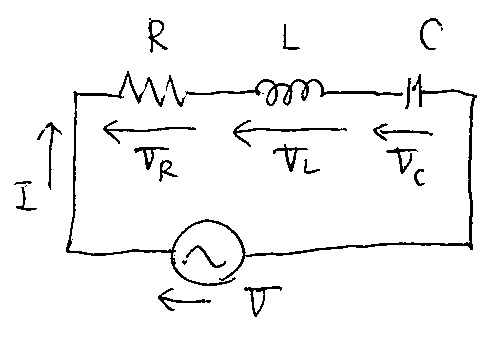 R L C
V_R V_L V_C
I
V